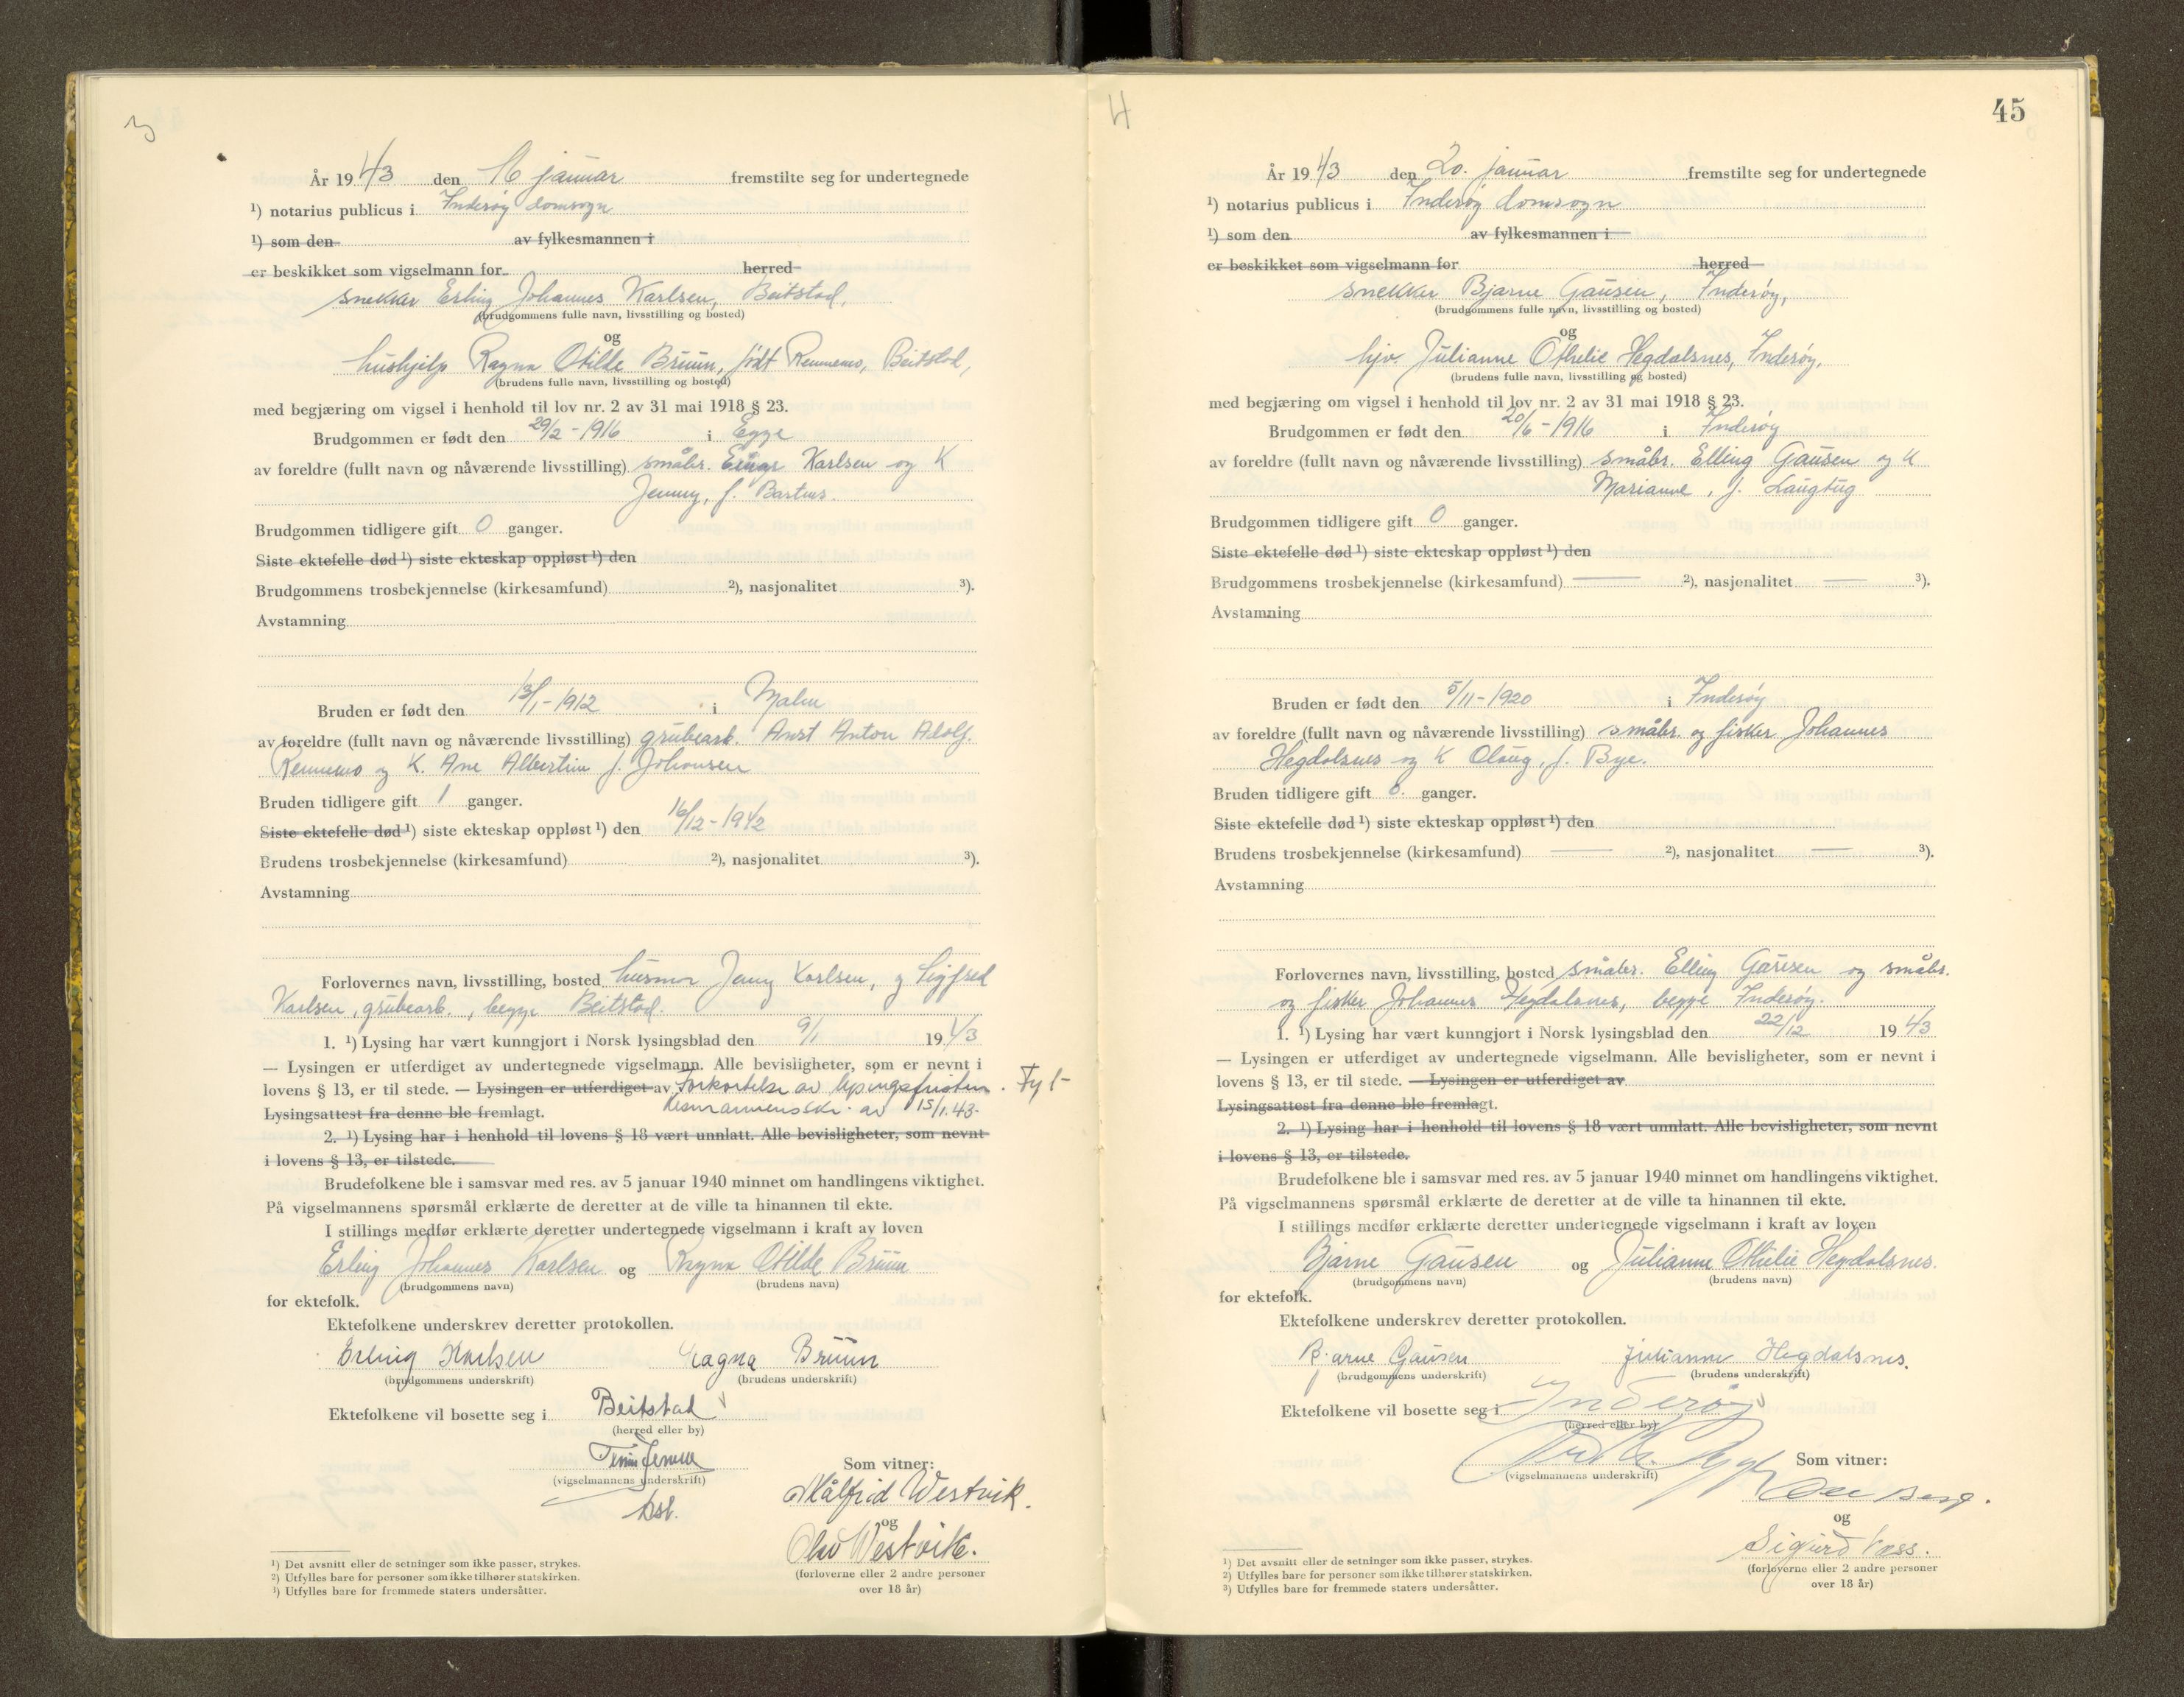 3
År 1943 den 16 januar fremstilte seg for undertegnede
¹) notarius publicus i Inderøy domsogn
¹) som den av fylkesmannen i
er beskikket som vigselmann for herred
snekker Erling Johannes Karlsen, Beitstad,
(brudgommens fulle navn, livsstilling og bosted)
og
hushjelp Ragna Otilde Bruun, født Rennemo, Beitstad,
(brudens fulle navn, livsstilling og bosted)
med begjæring om vigsel i henhold til lov nr. 2 av 31 mai 1918 § 23.
Brudgommen er født den 29/2 - 1916 i Egge
av foreldre (fullt navn og nåværende livsstilling) småbr. Einar Karlsen og K
Jenny, f. Bartnes.
Brudgommen tidligere gift 0 ganger.
Siste ektefelle død ¹) siste ekteskap oppløst ¹) den
Brudgommens trosbekjennelse (kirkesamfund) ²), nasjonalitet ³).
Avstamning
Bruden er født den 13/1 - 1912 i Malm
av foreldre (fullt navn og nåværende livsstilling) grubearb. Anton Adolf.
Rennemo og K. Ane Albertine f. Johansen
Bruden tidligere gift 1 ganger.
Siste ektefelle død ¹) siste ekteskap oppløst ¹) den 16/12 - 1942
Brudens trosbekjennelse (kirkesamfund) ²), nasjonalitet ³).
Avstamning
Forlovernes navn, livsstilling, bosted husmor Jenny Karlsen, og Sigfred
Karlsen, grubearb., begge Beitstad.
1. ¹) Lysing har vært kunngjort i Norsk lysingsblad den 9/1 1943
— Lysingen er utferdiget av undertegnede vigselmann. Alle bevisligheter, som er nevnt i
lovens § 13, er til stede. — Lysingen er utferdiget av Forkortelse av lysingsfristen. Fyl-
Lysingsattest fra denne ble fremlagt. kesmannens skr. av 15/1.43.
2. ¹) Lysing har i henhold til lovens § 18 vært unnlatt. Alle bevisligheter, som nevnt
i lovens § 13, er tilstede.
Brudefolkene ble i samsvar med res. av 5 januar 1940 minnet om handlingens viktighet.
På vigselmannens spørsmål erklærte de deretter at de ville ta hinannen til ekte.
I stillings medfør erklærte deretter undertegnede vigselmann i kraft av loven
Erling Johannes Karlsen og Ragna Otilde Bruun
(brudgommens navn) (brudens navn)
for ektefolk.
Ektefolkene underskrev deretter protokollen.
Erling Karlsen Ragna Bruun
(brudgommens underskrift) (brudens underskrift)
Ektefolkene vil bosette seg i Beitstad
(herred eller by)
Som vitner:
(vigselmannens underskrift)
Målfrid Westvik.
og
Olav Westvik.
(forloverne eller 2 andre personer
over 18 år)
¹) Det avsnitt eller de setninger som ikke passer, strykes.
²) Utfylles bare for personer som ikke tilhører statskirken.
³) Utfylles bare for fremmede staters undersåtter.
4
45
År 1943 den 20. januar fremstilte seg for undertegnede
¹) notarius publicus i Inderøy domsogn
¹) som den av fylkesmannen i
er beskikket som vigselmann for herred
snekker Bjarne Gausen, Inderøy,
(brudgommens fulle navn, livsstilling og bosted)
og
hjv. Julianne Othelie Hegdalsnes, Inderøy,
(brudens fulle navn, livsstilling og bosted)
med begjæring om vigsel i henhold til lov nr. 2 av 31 mai 1918 § 23.
Brudgommen er født den 20/6 - 1916 i Inderøy
av foreldre (fullt navn og nåværende livsstilling) småbr. Elling Gausen og K
Marianne, f. Langtug
Brudgommen tidligere gift 0 ganger.
Siste ektefelle død ¹) siste ekteskap oppløst ¹) den
Brudgommens trosbekjennelse (kirkesamfund) — ²), nasjonalitet — ³).
Avstamning
Bruden er født den 5/11 - 1920 i Inderøy
av foreldre (fullt navn og nåværende livsstilling) småbr. og fisker Johannes
Hegdalsnes og K Olaug, f. Bye.
Bruden tidligere gift 0. ganger.
Siste ektefelle død ¹) siste ekteskap oppløst ¹) den
Brudens trosbekjennelse (kirkesamfund) — ²), nasjonalitet — ³).
Avstamning
Forlovernes navn, livsstilling, bosted småbr. Elling Gausen og småbr.
og fisker Johannes Hegdalsnes, begge Inderøy.
1. ¹) Lysing har vært kunngjort i Norsk lysingsblad den 22/12 1943
— Lysingen er utferdiget av undertegnede vigselmann. Alle bevisligheter, som er nevnt i
lovens § 13, er til stede. — Lysingen er utferdiget av
Lysingsattest fra denne ble fremlagt.
2. ¹) Lysing har i henhold til lovens § 18 vært unnlatt. Alle bevisligheter, som nevnt
i lovens § 13, er tilstede.
Brudefolkene ble i samsvar med res. av 5 januar 1940 minnet om handlingens viktighet.
På vigselmannens spørsmål erklærte de deretter at de ville ta hinannen til ekte.
I stillings medfør erklærte deretter undertegnede vigselmann i kraft av loven
Bjarne Gausen og Julianne Othelie Hegdalsnes.
(brudgommens navn) (brudens navn)
for ektefolk.
Ektefolkene underskrev deretter protokollen.
Bjarne Gausen Julianne Hegdalsnes.
(brudgommens underskrift) (brudens underskrift)
Ektefolkene vil bosette seg i Inderøy
(herred eller by)
Som vitner:
(vigselmannens underskrift)
og
Sigurd
(forloverne eller 2 andre personer
over 18 år)
¹) Det avsnitt eller de setninger som ikke passer, strykes.
²) Utfylles bare for personer som ikke tilhører statskirken.
³) Utfylles bare for fremmede staters undersåtter.